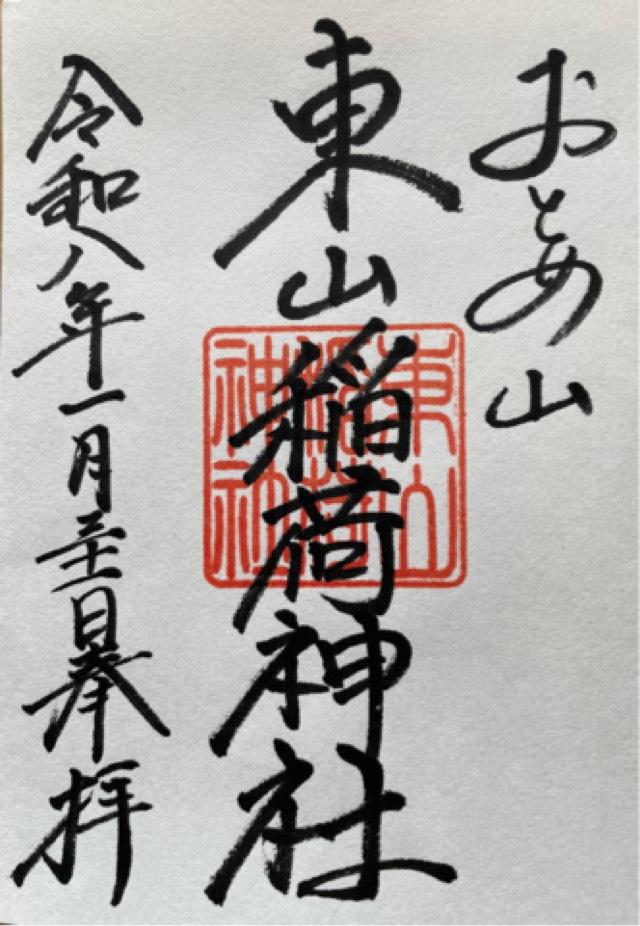 おとめ山
東山稲荷神社
令和八年一月二十一日奉拝
東山
稲荷
神社